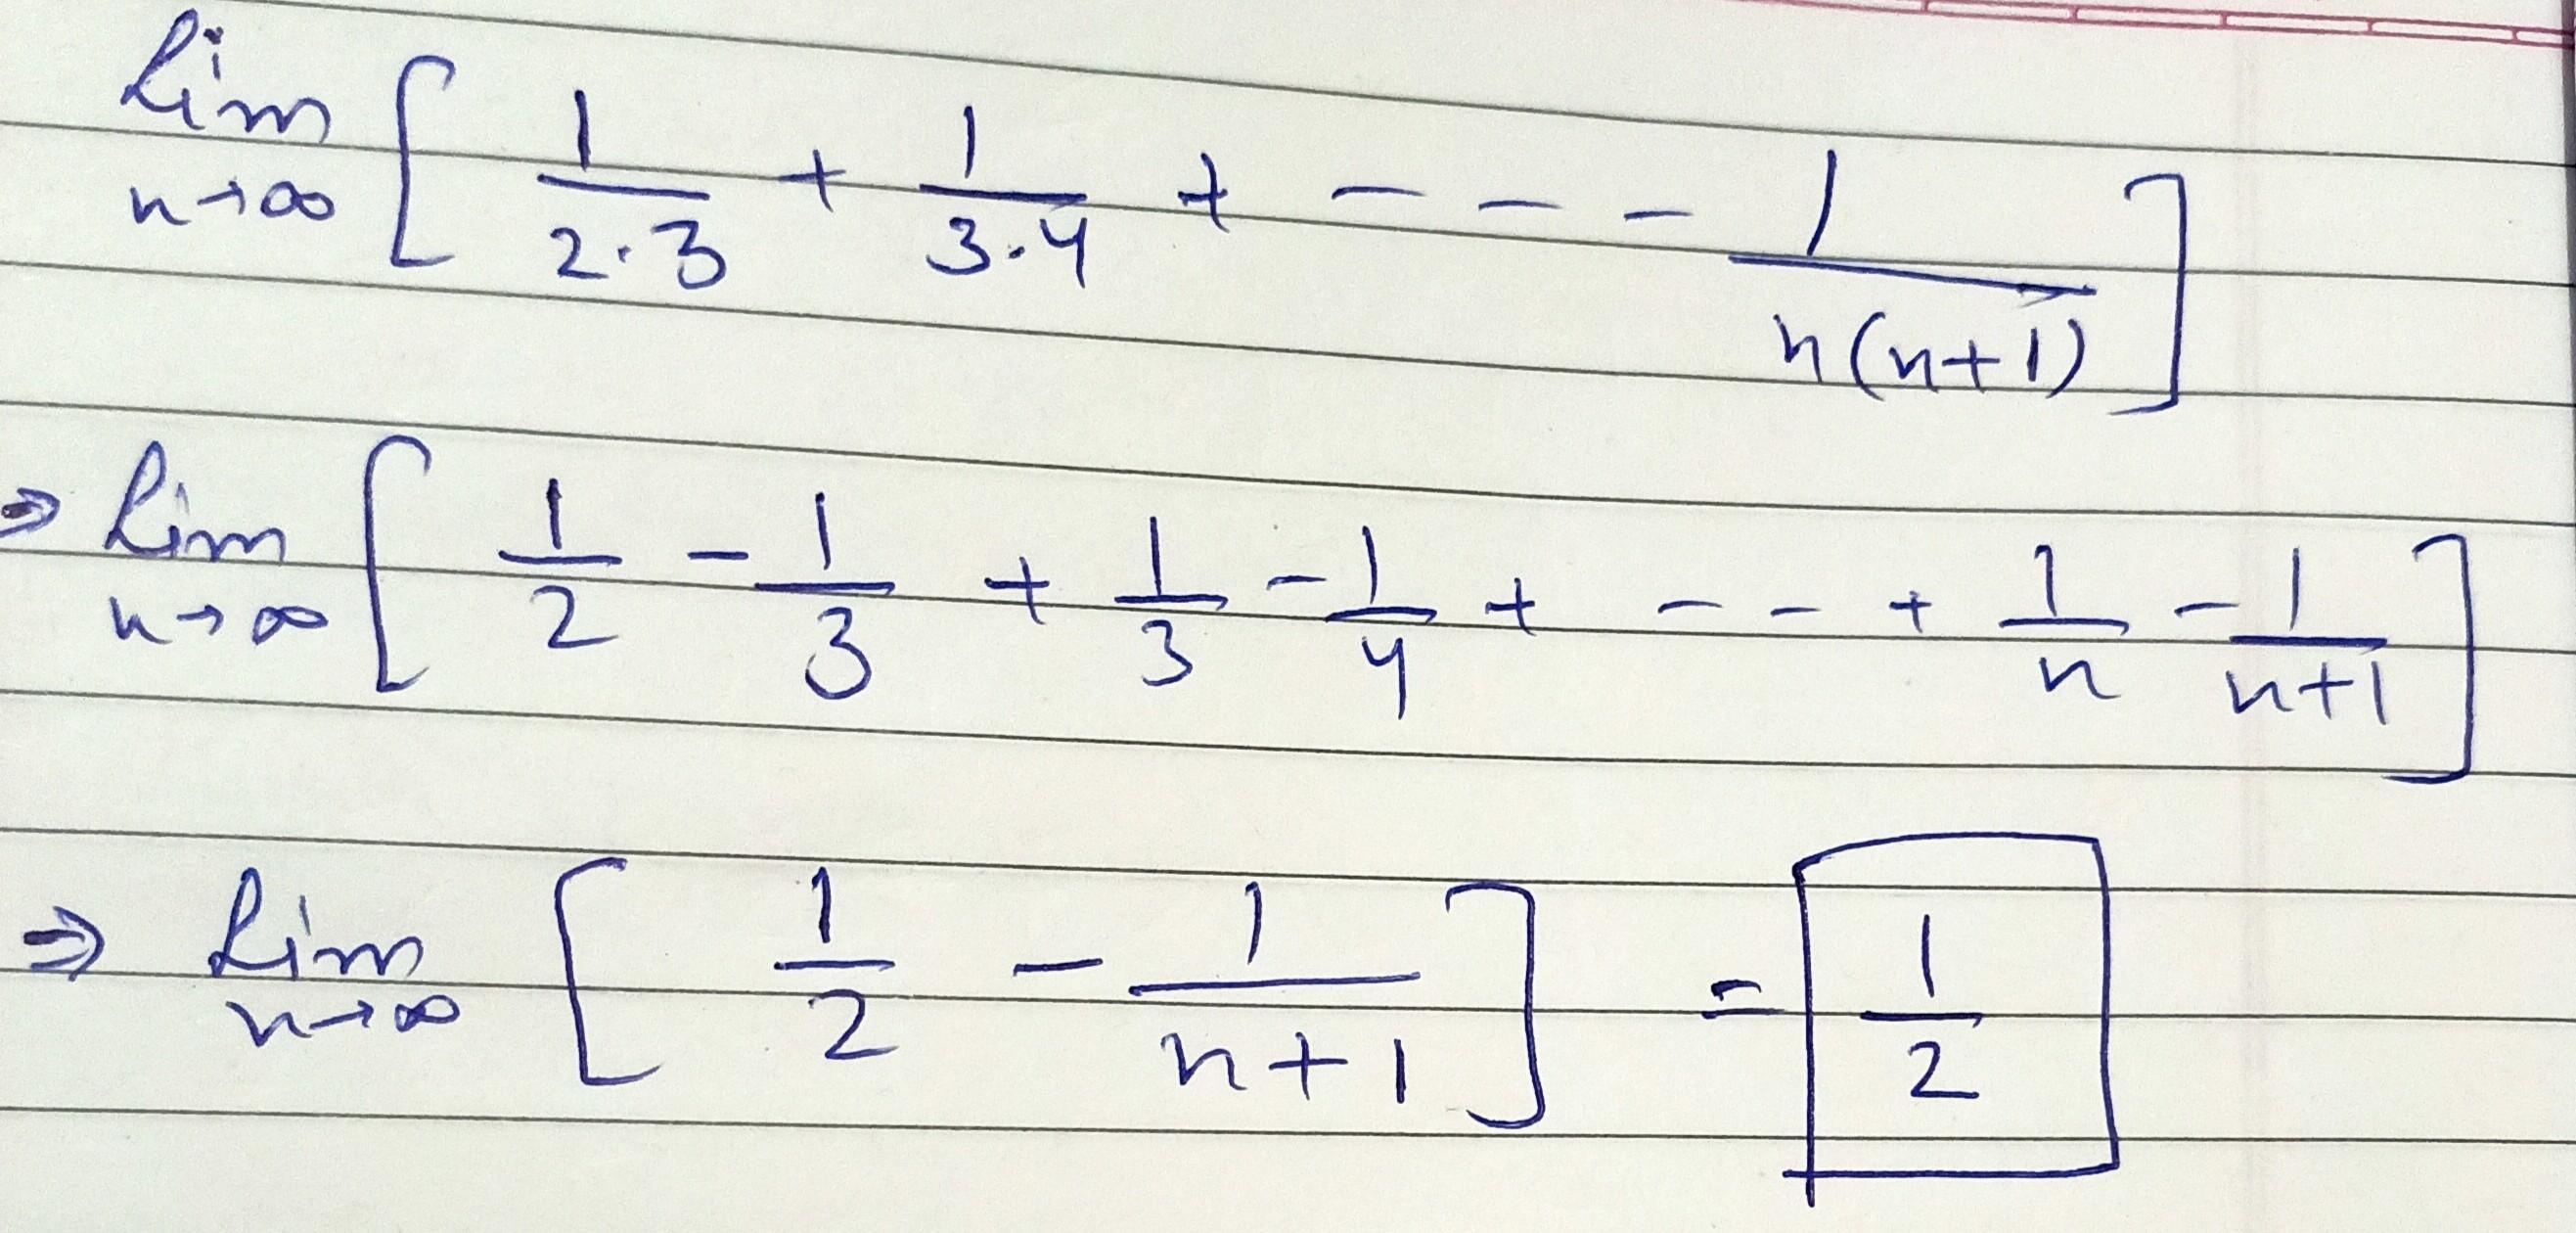 lim n→∞ [ 1/2·3 + 1/3·4 + - - - 1/n(n+1) ]
⇒ lim n→∞ [ 1/2 - 1/3 + 1/3 - 1/4 + - - + 1/n - 1/n+1 ]
⇒ lim n→∞ [ 1/2 - 1/n+1 ] = 1/2